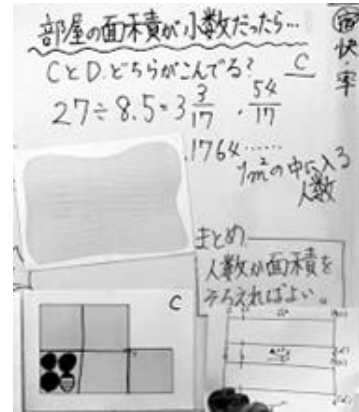 部屋の面積が小数だったら…
CとD.どちらがこんでる? C
27÷8.5=3 3/17 . 54/17
.1764……
1m²の中に入る
人数
まとめ
人数か面積を
そろえればよい。
C